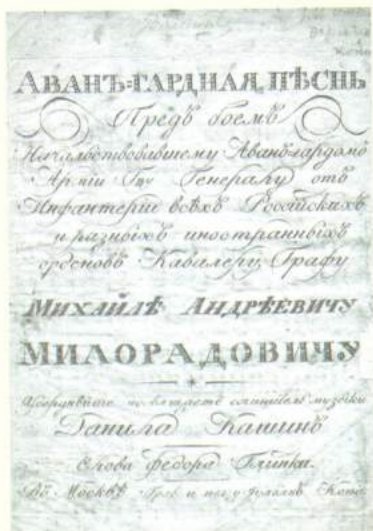 АВАНЪ=ГАРДНАЯ ПѢСНЬ
Предъ боемъ
Начальствовавшему Аванъгардомъ
Арміи Гну Генералу отъ
Инфантеріи всѣхъ Россійскихъ
и разныхъ иностранныхъ
орденовъ Кавалеру, Графу
МИХАЙЛѢ АНДРѢЕВИЧУ
МИЛОРАДОВИЧУ
сочинитель музыки
Данила Кашинъ
Слова Федора Глинки.
Въ Москвѣ